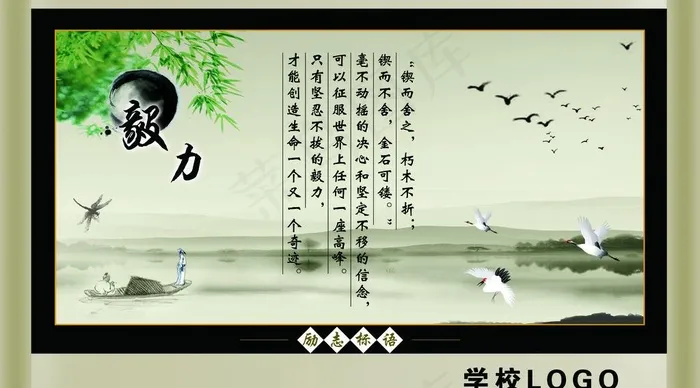 毅力
“锲而舍之，朽木不折；
锲而不舍，金石可镂。”
毫不动摇的决心和坚定不移的信念，
可以征服世界上任何一座高峰。
只有坚忍不拔的毅力，
才能创造生命一个又一个奇迹。
励志标语
学校LOGO